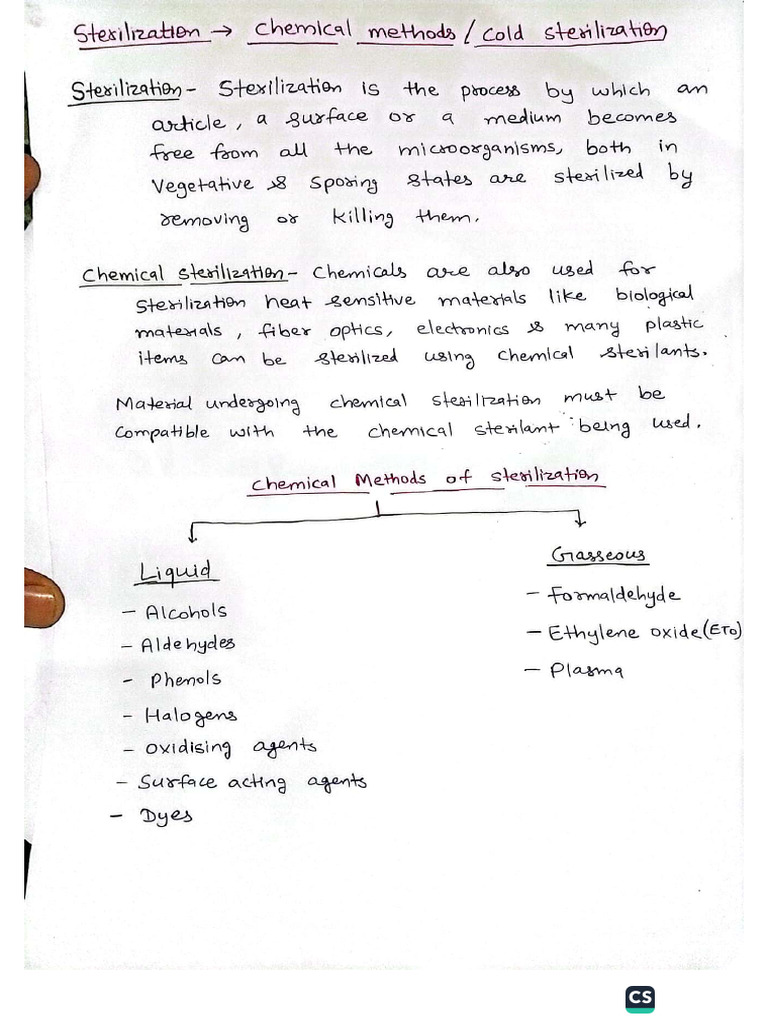 Sterilization → Chemical methods / Cold sterilization
Sterilization - Sterilization is the process by which an
article, a surface or a medium becomes
free from all the microorganisms, both in
Vegetative & sporing states are sterilized by
removing or killing them.
Chemical sterilization - Chemicals are also used for
sterilization heat sensitive materials like biological
materials, fiber optics, electronics & many plastic
items can be sterilized using chemical sterilants.
Material undergoing chemical sterilization must be
compatible with the chemical sterilant being used.
Chemical Methods of sterilization
Liquid
- Alcohols
- Aldehydes
- Phenols
- Halogens
- Oxidising agents
- Surface acting agents
- Dyes
Gasseous
- Formaldehyde
- Ethylene oxide (ETO)
- Plasma
CS